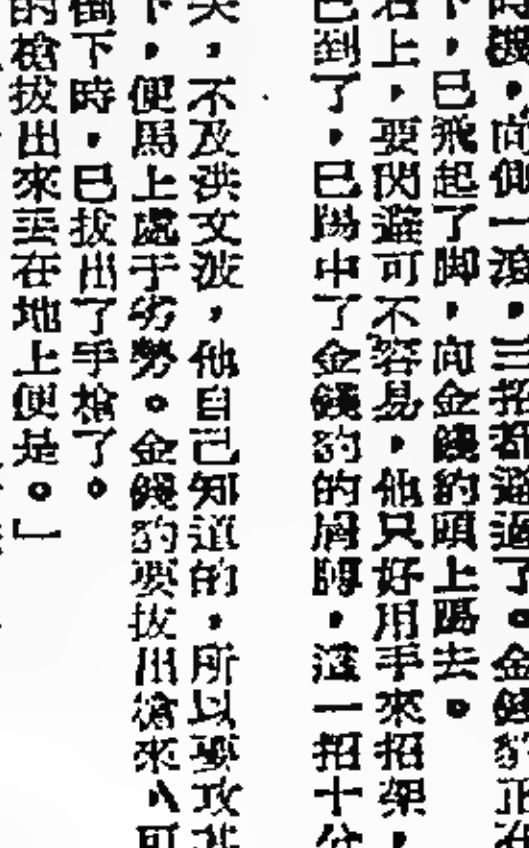 時機，向側一滾，三招都避過了。金錢豹正在
下，已飛起了脚，向金錢豹頭上踢去。
石上，要閃避可不容易，他只好用手來招架，
已到了，已踢中了金錢豹的肩膊，這一招十分
失，不及洪文波，他自己知道的，所以要攻其
下，便馬上處于劣勢。金錢豹要拔出槍來，可
倒下時，已拔出了手槍了。
的槍拔出來丟在地上便是。」